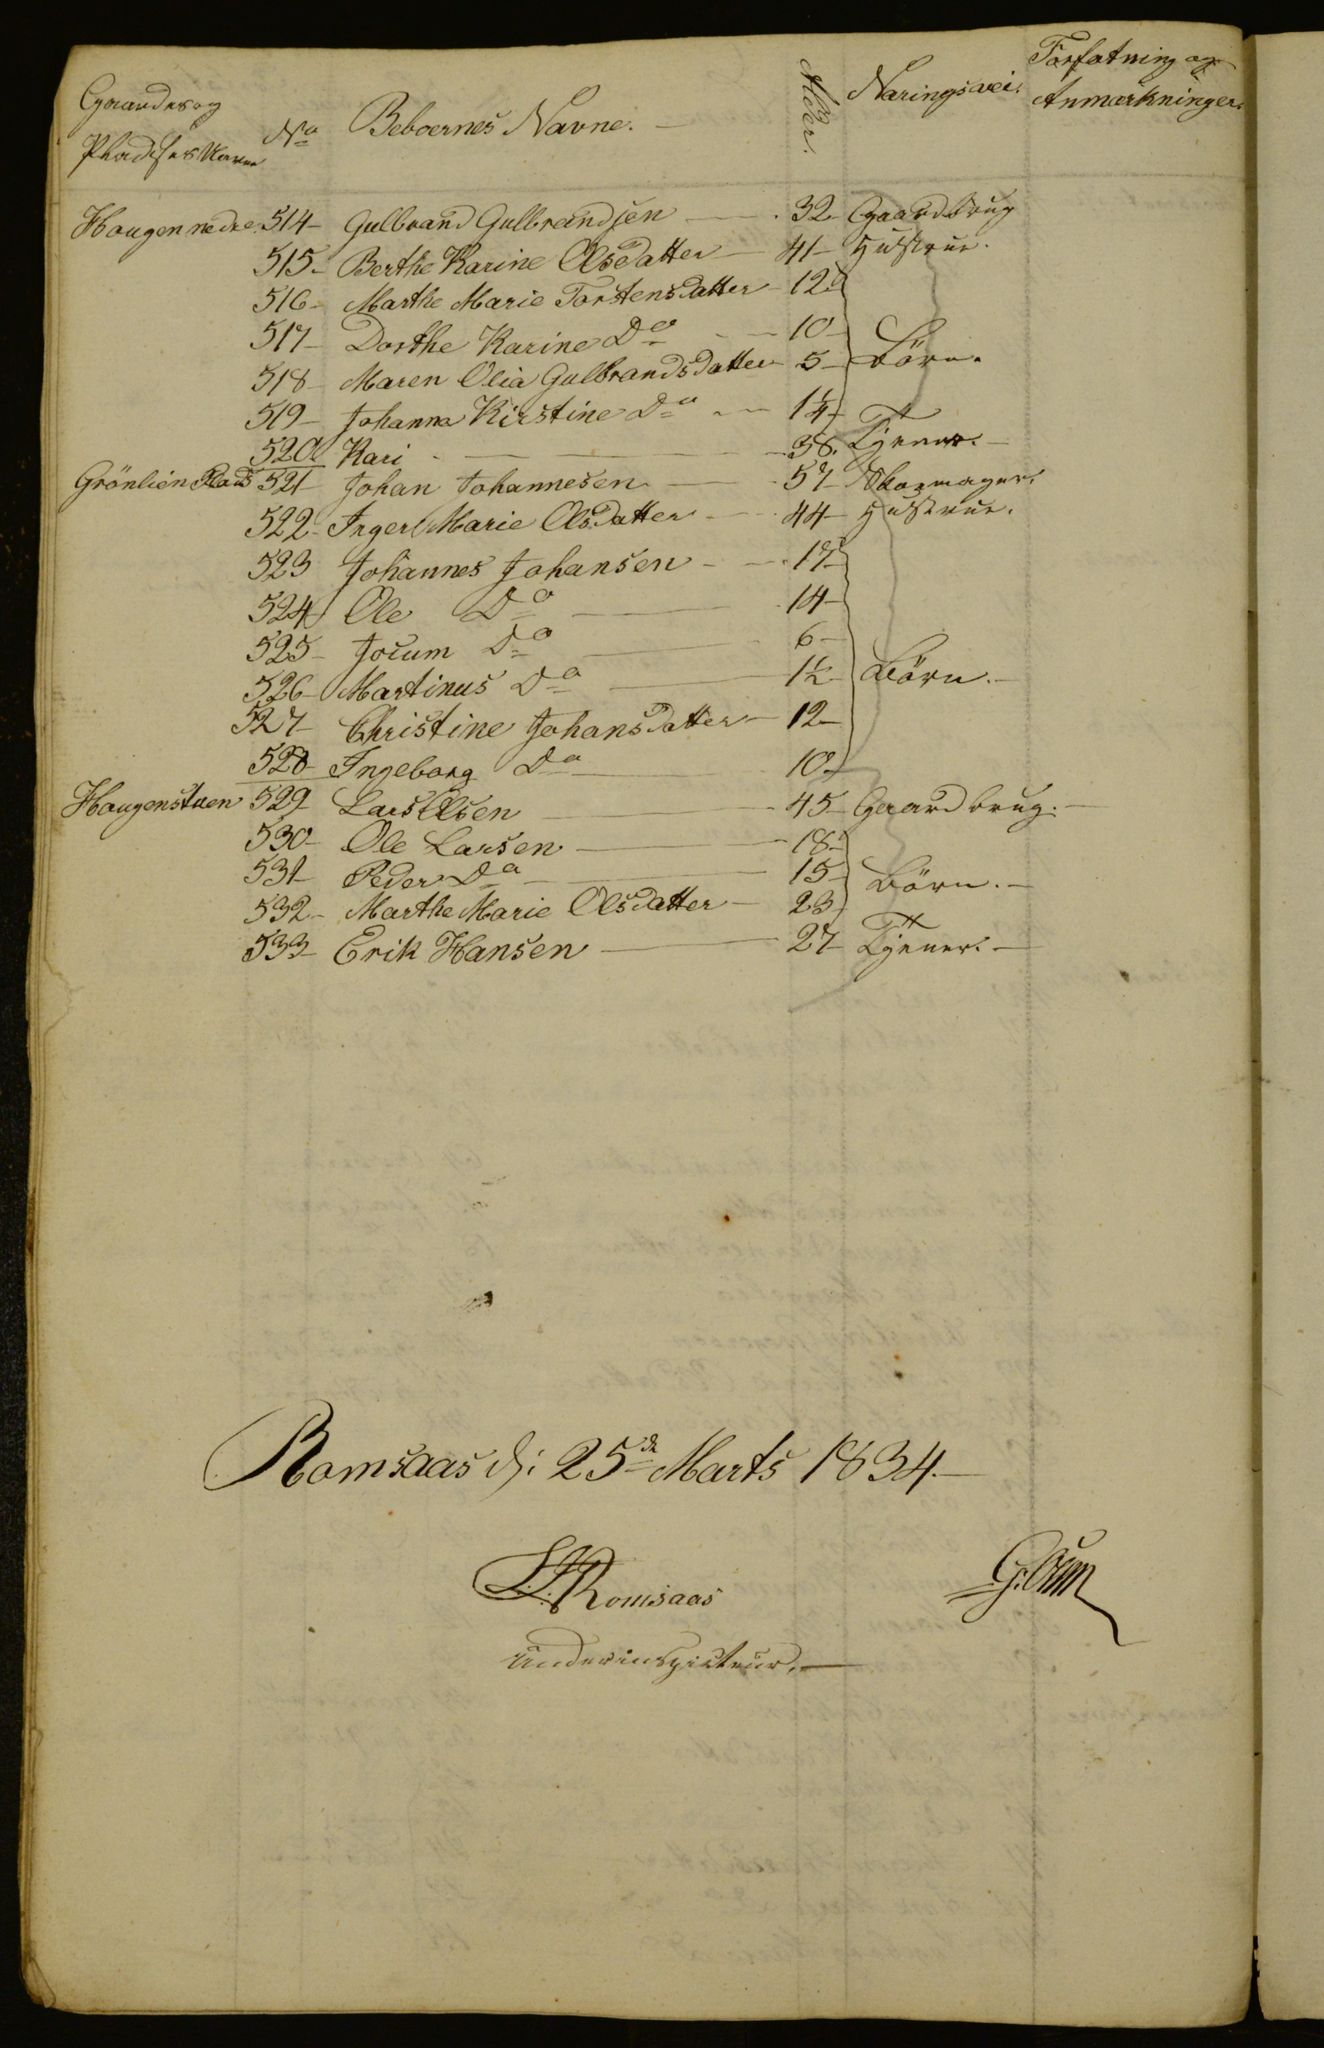 Gaardes og Pladsers Navne No Beboernes Navne. — Alder. Næringsvei. Forfatning og Anmærkninger.
Haugen nedre. 514 – Gulbrand Gulbrandsen — 32 Gaardbrug
515 – Berthe Karine Olsdatter — 41 – Hustrue.
516 – Marthe Marie Torstensdatter – 12
517 – Dorthe Karine Do — 10 –
518 – Maren Olia Gulbrandsdatter – 5 – Börn.
519 – Johanna Kirstine Do — 1/4
520 Kari — 38. Tjener. —
Grönlien Plads 521 – Johan Johannesen — 57 – Skoemager.
522 – Inger Marie Olsdatter — 44 – Hustrue.
523 Johannes Johansen — 17 –
524 Ole Do — 14 –
525 – Jocum Do — 6 –
526 – Martinus Do — 1/2 – Börn. —
527 – Christine Johansdatter — 12 –
528 – Ingeborg Do — 10 –
Haugenstuen 529 – Lars Olsen — 45 – Gaardbrug. —
530 – Ole Larsen — 18 –
531 – Peder Do — 15 – Börn. —
532 – Marthe Marie Olsdatter — 23 –
533 – Erik Hansen — 27 – Tjener. —
Romsaas d: 25de Marts 1834. —
Romsaas
Underinspecteur. —